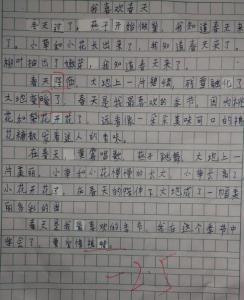 我喜欢春天
冬天过了，燕子开始做巢，我知道春天来
了。小草和小花长出来了，我知道春天来了。
柳叶抽出了嫩芽，我知道春天来了。
春天，大地上一片碧绿，融化了
大地变暖了。春天是我最喜欢的季节，因为桃
花和梨花开花了，远看像一朵朵美味可口的棉
花糖散发着迷人的香味。
在春天，黄莺唱歌，燕子跳舞，大地上一
片美丽。小草和小花慢慢的长大，小草长高了
小花开花了。在春天的陪伴下大地成了一幅美
丽多彩的画
春天是我最喜欢的季节，我在这个季节中
-2.5